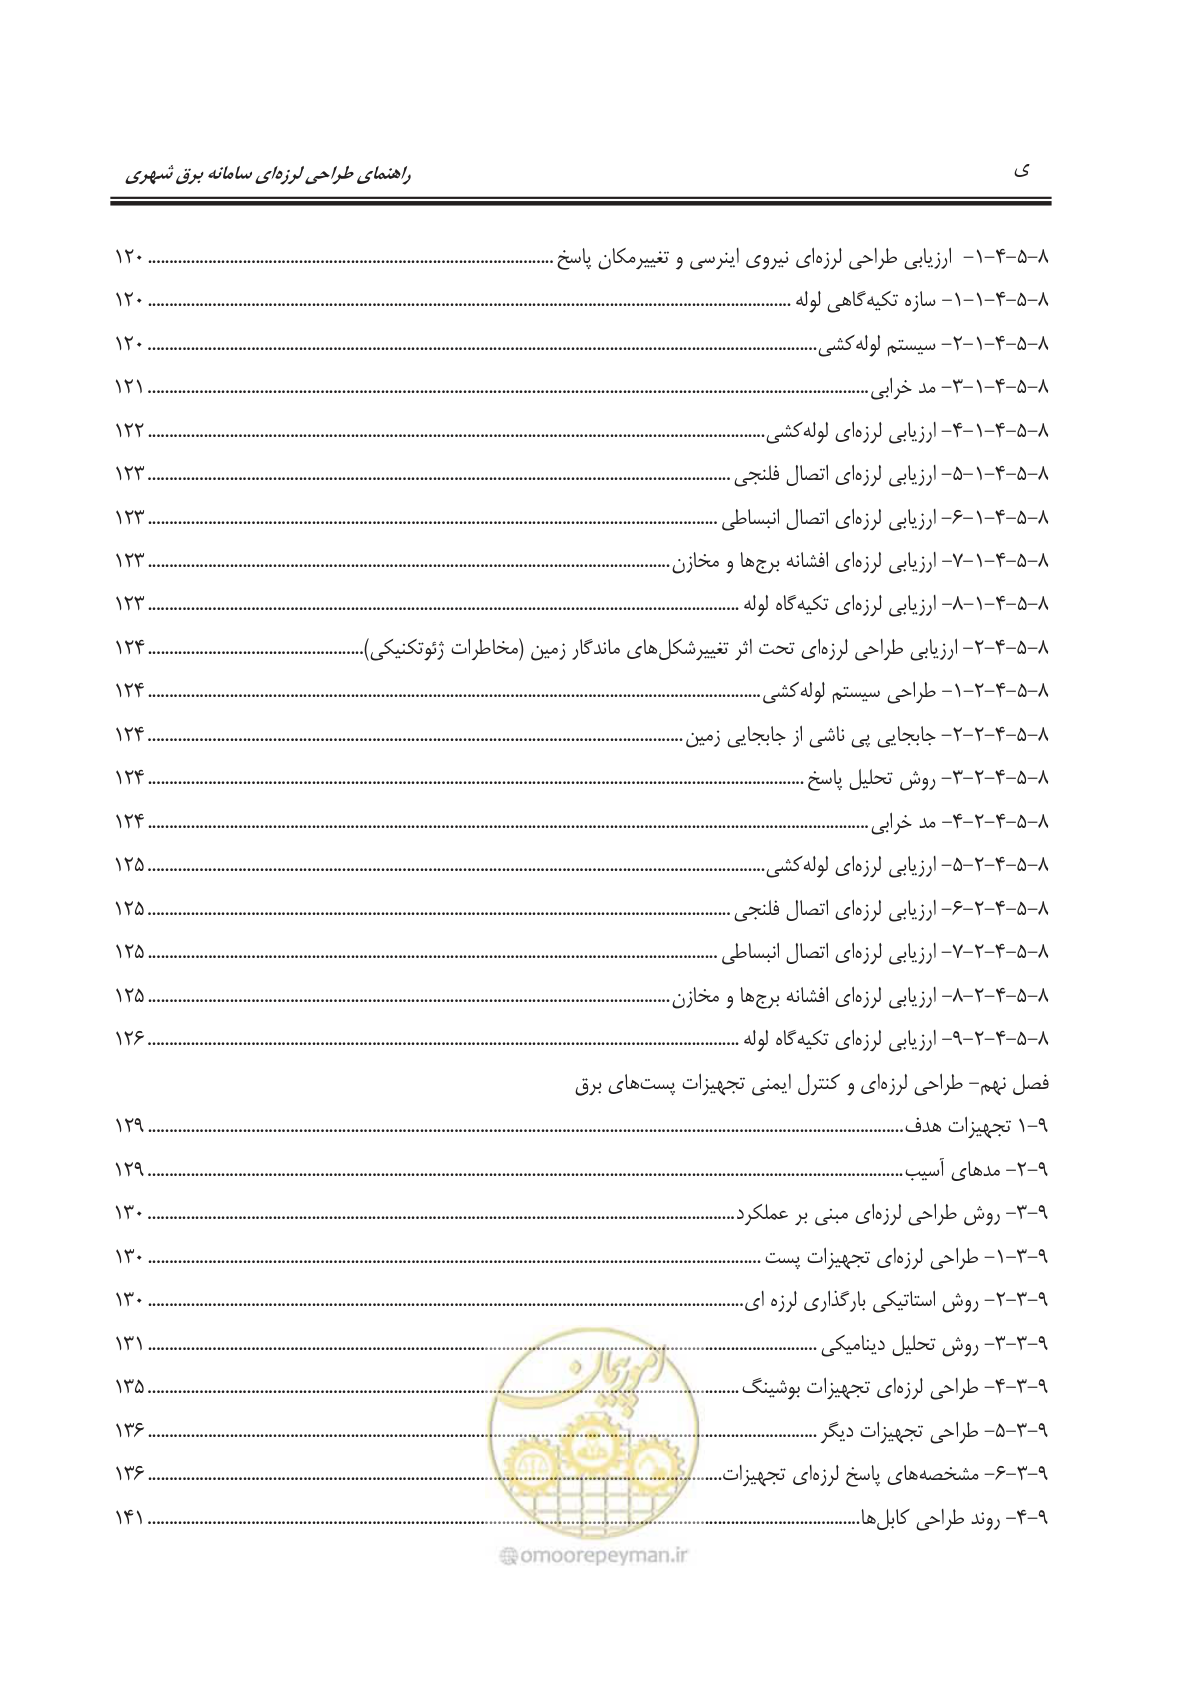 ی
راهنمای طراحی لرزه‌ای سامانه برق شهری
۸-۵-۴-۱- ارزیابی طراحی لرزه‌ای نیروی اینرسی و تغییرمکان پاسخ ۱۲۰
۸-۵-۴-۱-۱- سازه تکیه‌گاهی لوله ۱۲۰
۸-۵-۴-۱-۲- سیستم لوله‌کشی ۱۲۰
۸-۵-۴-۱-۳- مد خرابی ۱۲۱
۸-۵-۴-۱-۴- ارزیابی لرزه‌ای لوله‌کشی ۱۲۲
۸-۵-۴-۱-۵- ارزیابی لرزه‌ای اتصال فلنجی ۱۲۳
۸-۵-۴-۱-۶- ارزیابی لرزه‌ای اتصال انبساطی ۱۲۳
۸-۵-۴-۱-۷- ارزیابی لرزه‌ای افشانه برج‌ها و مخازن ۱۲۳
۸-۵-۴-۱-۸- ارزیابی لرزه‌ای تکیه‌گاه لوله ۱۲۳
۸-۵-۴-۲- ارزیابی طراحی لرزه‌ای تحت اثر تغییرشکل‌های ماندگار زمین (مخاطرات ژئوتکنیکی) ۱۲۴
۸-۵-۴-۲-۱- طراحی سیستم لوله‌کشی ۱۲۴
۸-۵-۴-۲-۲- جابجایی پی ناشی از جابجایی زمین ۱۲۴
۸-۵-۴-۲-۳- روش تحلیل پاسخ ۱۲۴
۸-۵-۴-۲-۴- مد خرابی ۱۲۴
۸-۵-۴-۲-۵- ارزیابی لرزه‌ای لوله‌کشی ۱۲۵
۸-۵-۴-۲-۶- ارزیابی لرزه‌ای اتصال فلنجی ۱۲۵
۸-۵-۴-۲-۷- ارزیابی لرزه‌ای اتصال انبساطی ۱۲۵
۸-۵-۴-۲-۸- ارزیابی لرزه‌ای افشانه برج‌ها و مخازن ۱۲۵
۸-۵-۴-۲-۹- ارزیابی لرزه‌ای تکیه‌گاه لوله ۱۲۶
فصل نهم- طراحی لرزه‌ای و کنترل ایمنی تجهیزات پست‌های برق
۹-۱ تجهیزات هدف ۱۲۹
۹-۲- مدهای آسیب ۱۲۹
۹-۳- روش طراحی لرزه‌ای مبنی بر عملکرد ۱۳۰
۹-۳-۱- طراحی لرزه‌ای تجهیزات پست ۱۳۰
۹-۳-۲- روش استاتیکی بارگذاری لرزه ای ۱۳۰
۹-۳-۳- روش تحلیل دینامیکی ۱۳۱
۹-۳-۴- طراحی لرزه‌ای تجهیزات بوشینگ ۱۳۵
۹-۳-۵- طراحی تجهیزات دیگر ۱۳۶
۹-۳-۶- مشخصه‌های پاسخ لرزه‌ای تجهیزات ۱۳۶
۹-۴- روند طراحی کابل‌ها ۱۴۱
امور پیمان
@omoorepeyman.ir